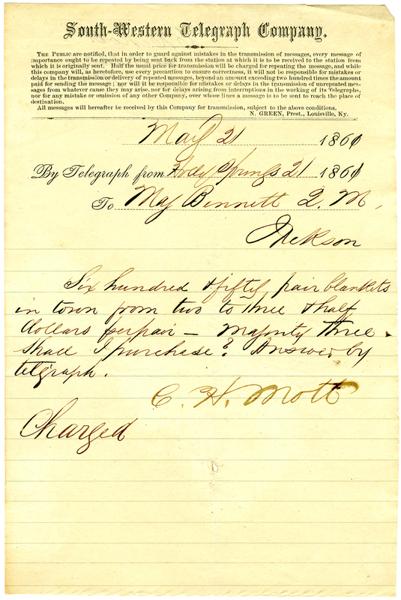 South-Western Telegraph Company.
THE PUBLIC are notified, that in order to guard against mistakes in the transmission of messages, every message of
importance ought to be repeated by being sent back from the station at which it is to be received to the station from
which it is originally sent. Half the usual price for transmission will be charged for repeating the message, and while
this company will, as heretofore, use every precaution to ensure correctness, it will not be responsible for mistakes or
delays in the transmission or delivery of repeated messages, beyond an amount exceeding two hundred times the amount
paid for sending the message; nor will it be responsible for mistakes or delays in the transmission of unrepeated mes-
sages from whatever cause they may arise, nor for delays arising from interruptions in the working of its Telegraphs,
nor for any mistake or omission of any other Company, over whose lines a message is to be sent to reach the place of
destination.
All messages will hereafter be received by this Company for transmission, subject to the above conditions.
N. GREEN, Prest., Louisville, Ky.
May 21 1861
By Telegraph from Holly Springs 21 1861
To Maj Bennett Q. M.
Jackson
Six hundred & fifty pair blankets
in town from two to three & half
dollars per pair – Majority three.
Shall I purchase? Answer by
telgraph.
C. H. Mott
Charged